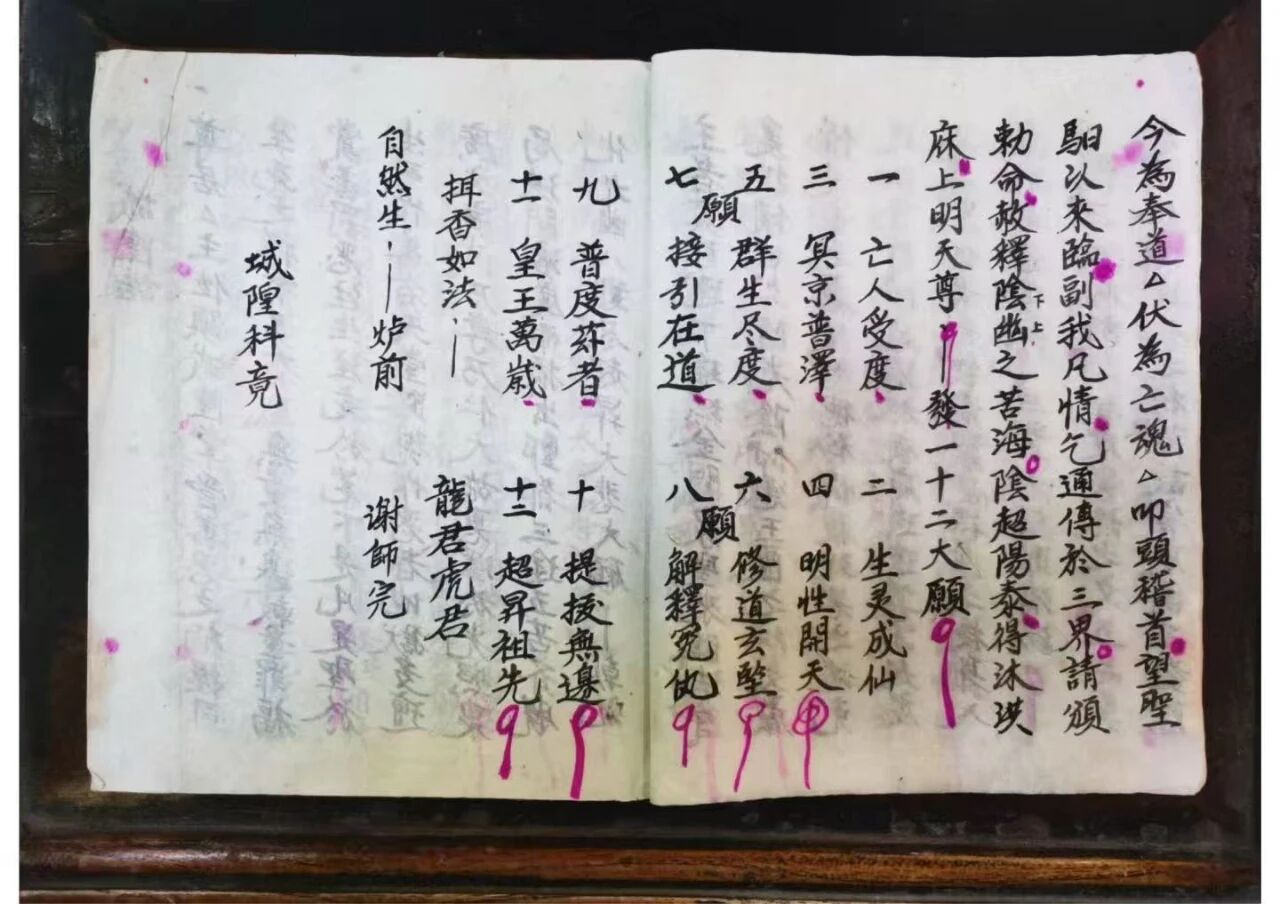 今為奉道△伏為亡魂△叩頭稽首望聖
駟以來臨副我凡情乞通傳於三界請頒
勅命赦釋陰幽之苦海陰超陽泰得沐洪
下上
庥上明天尊 發一十二大願
一 亡人受度 二 生灵成仙
三 冥京普澤 四 明性開天
五 群生尽度 六 修道玄堅
七願 接引在道 八願 解釋冤仇
九 普度苏者 十 提拔無邊
十一 皇王萬歲 十二 超昇祖先
捏香如法 龍君虎君
自然生 炉前 谢師完
城隍科竟